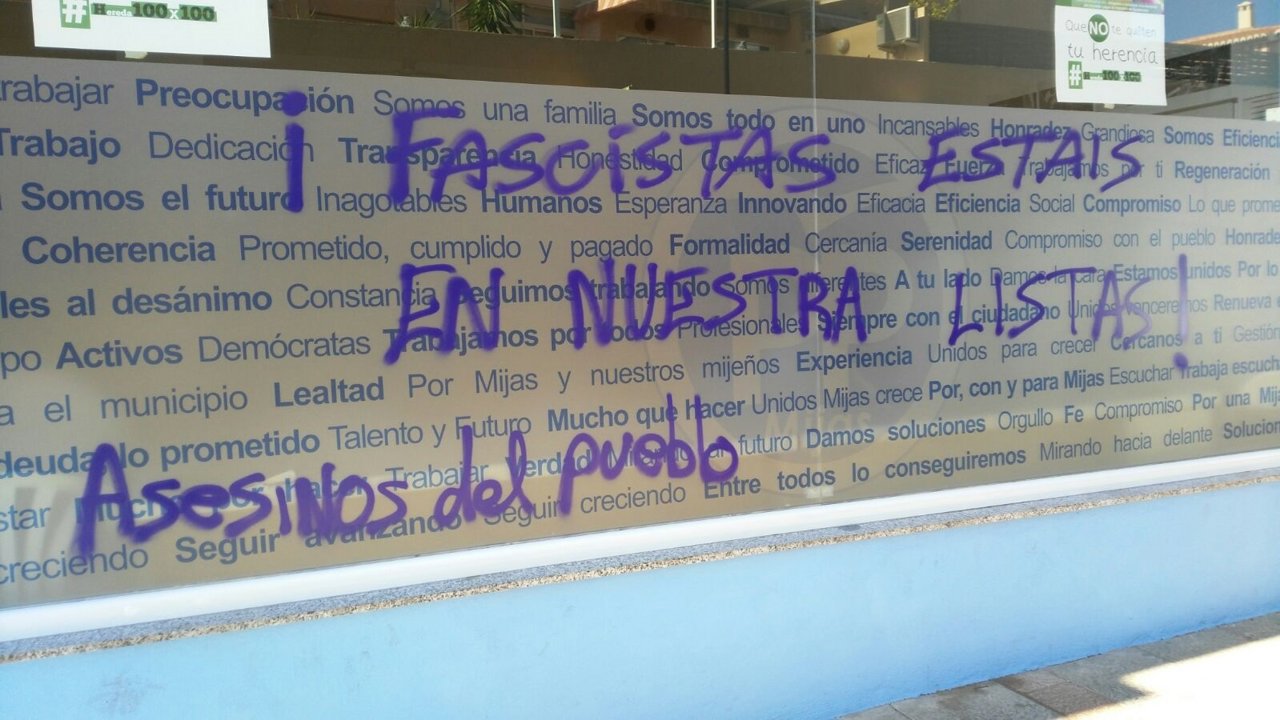 # Herede100x100
Que NO te quiten
tu herencia
# Herede100x100
trabajar Preocupación Somos una familia Somos todo en uno Incansables Honradez Grandiosa Somos Eficiencia
Trabajo Dedicación Transparencia Honestidad Comprometido Eficaz Fuerza Trabajamos por ti Regeneración
Somos el futuro Inagotables Humanos Esperanza Innovando Eficacia Eficiencia Social Compromiso Lo que prome
Coherencia Prometido, cumplido y pagado Formalidad Cercanía Serenidad Compromiso con el pueblo Honrade
les al desánimo Constancia Seguimos trabajando Somos diferentes A tu lado Damos la cara Estamos unidos Por lo
po Activos Demócratas Trabajamos por todos Profesionales Siempre con el ciudadano Unidos venceremos Renueva
a el municipio Lealtad Por Mijas y nuestros mijeños Experiencia Unidos para crecer Cercanos a ti Gestión
deuda lo prometido Talento y Futuro Mucho que hacer Unidos Mijas crece Por, con y para Mijas Escuchar Trabaja escuch
star Mucho por hacer Trabajar Verdad futuro Damos soluciones Orgullo Fe Compromiso Por una Mija
creciendo Seguir avanzando Seguir creciendo Entre todos lo conseguiremos Mirando hacia delante Solucion
¡ FASCISTAS ESTAIS
EN NUESTRA LISTAS!
ASESINOS del pueblo